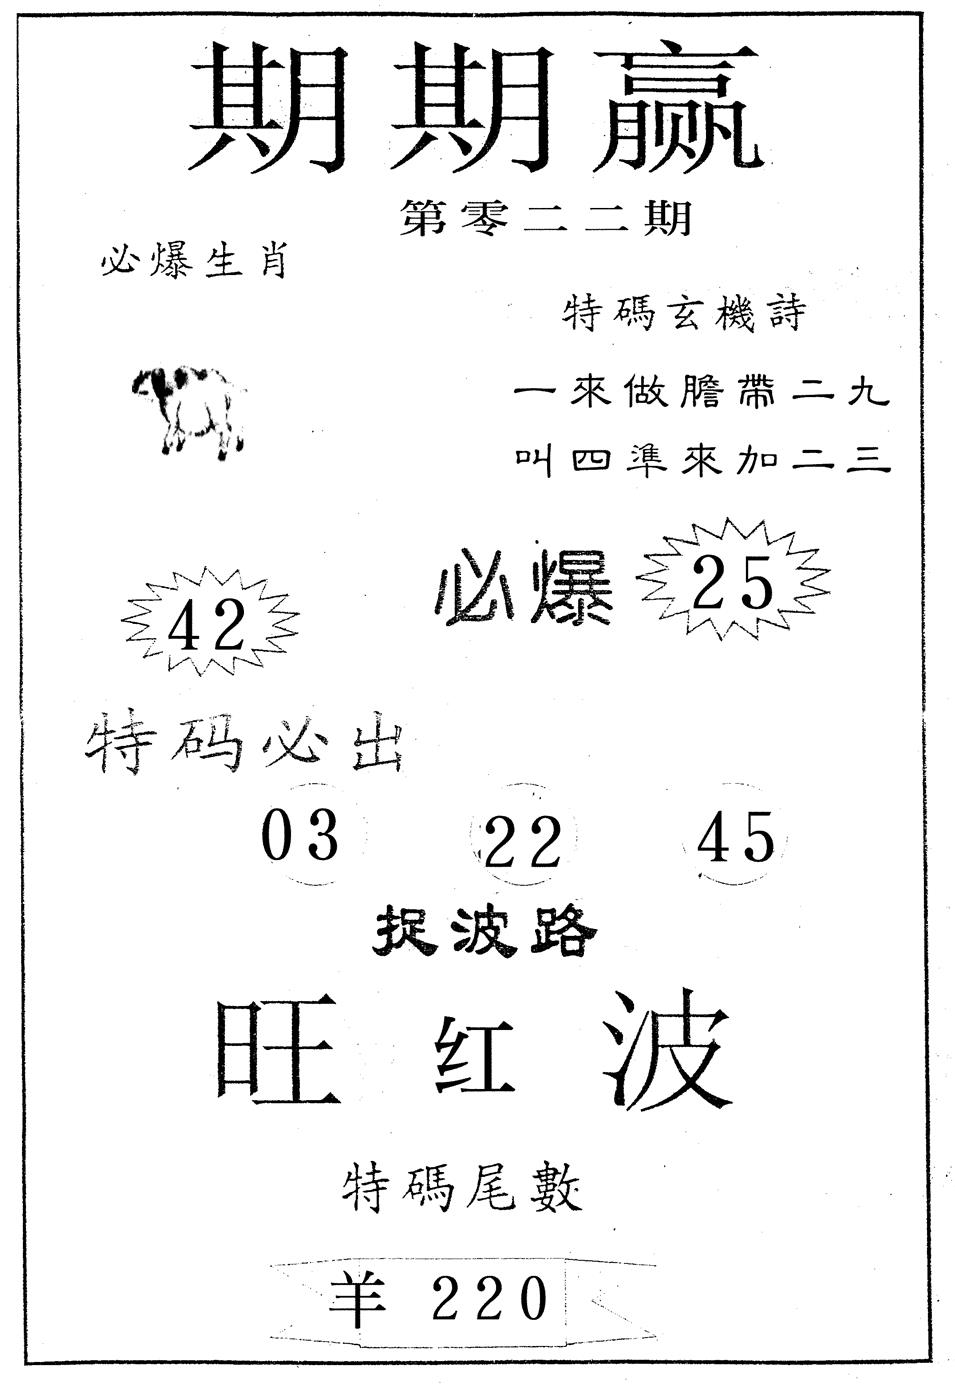 期期赢
第零二二期
必爆生肖
特碼玄機詩
一來做膽帶二九
叫四準來加二三
42
必爆 25
特码必出
03 22 45
捉波路
旺红波
特碼尾數
羊 220